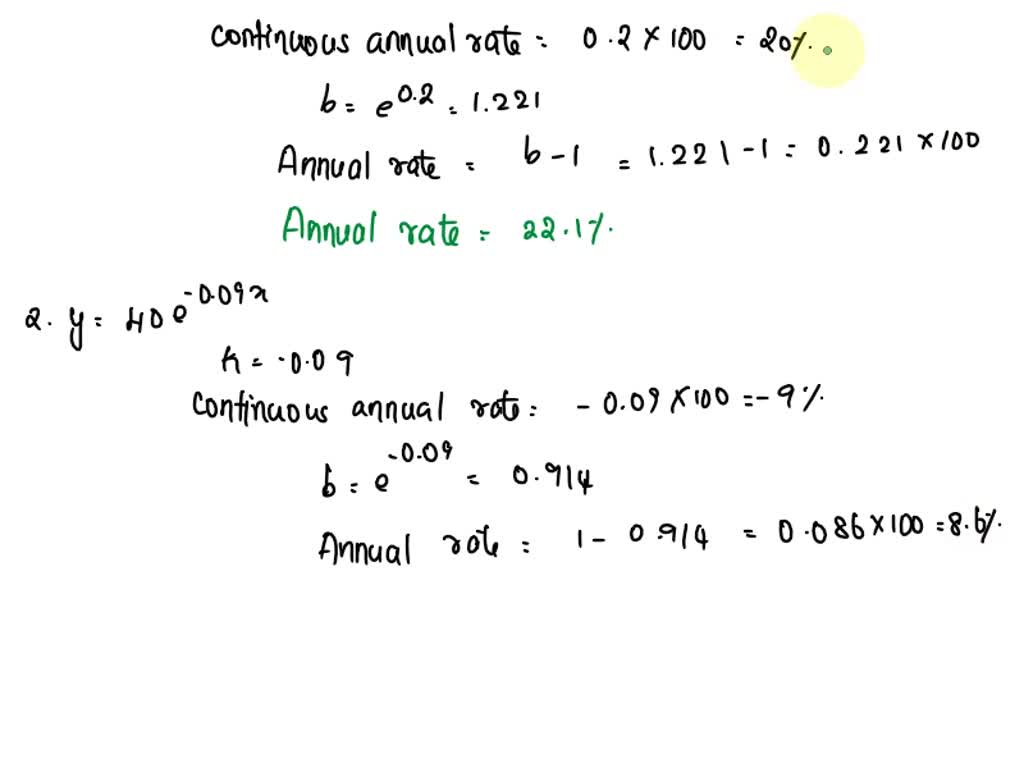 continuous annual rate = 0.2 × 100 = 20%.
b = e^0.2 = 1.221
Annual rate = b - 1 = 1.221 - 1 = 0.221 × 100
Annual rate = 22.1%.
2. y = 40 e^-0.09x
k = -0.09
continuous annual rate = - 0.09 × 100 = - 9%
b = e^-0.09 = 0.914
Annual rate = 1 - 0.914 = 0.086 × 100 = 8.6%.